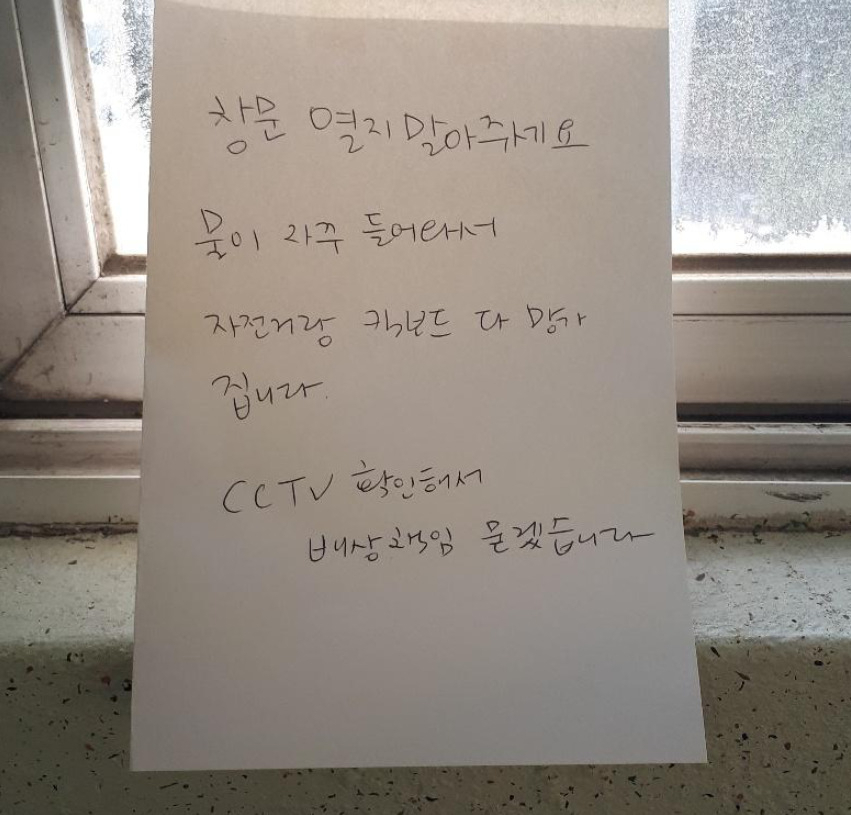 창문 열지말아주세요
물이 자주 들어와서
자전거랑 킥보드 다 망가
집니다.
CCTV 확인해서
배상책임 묻겠습니다